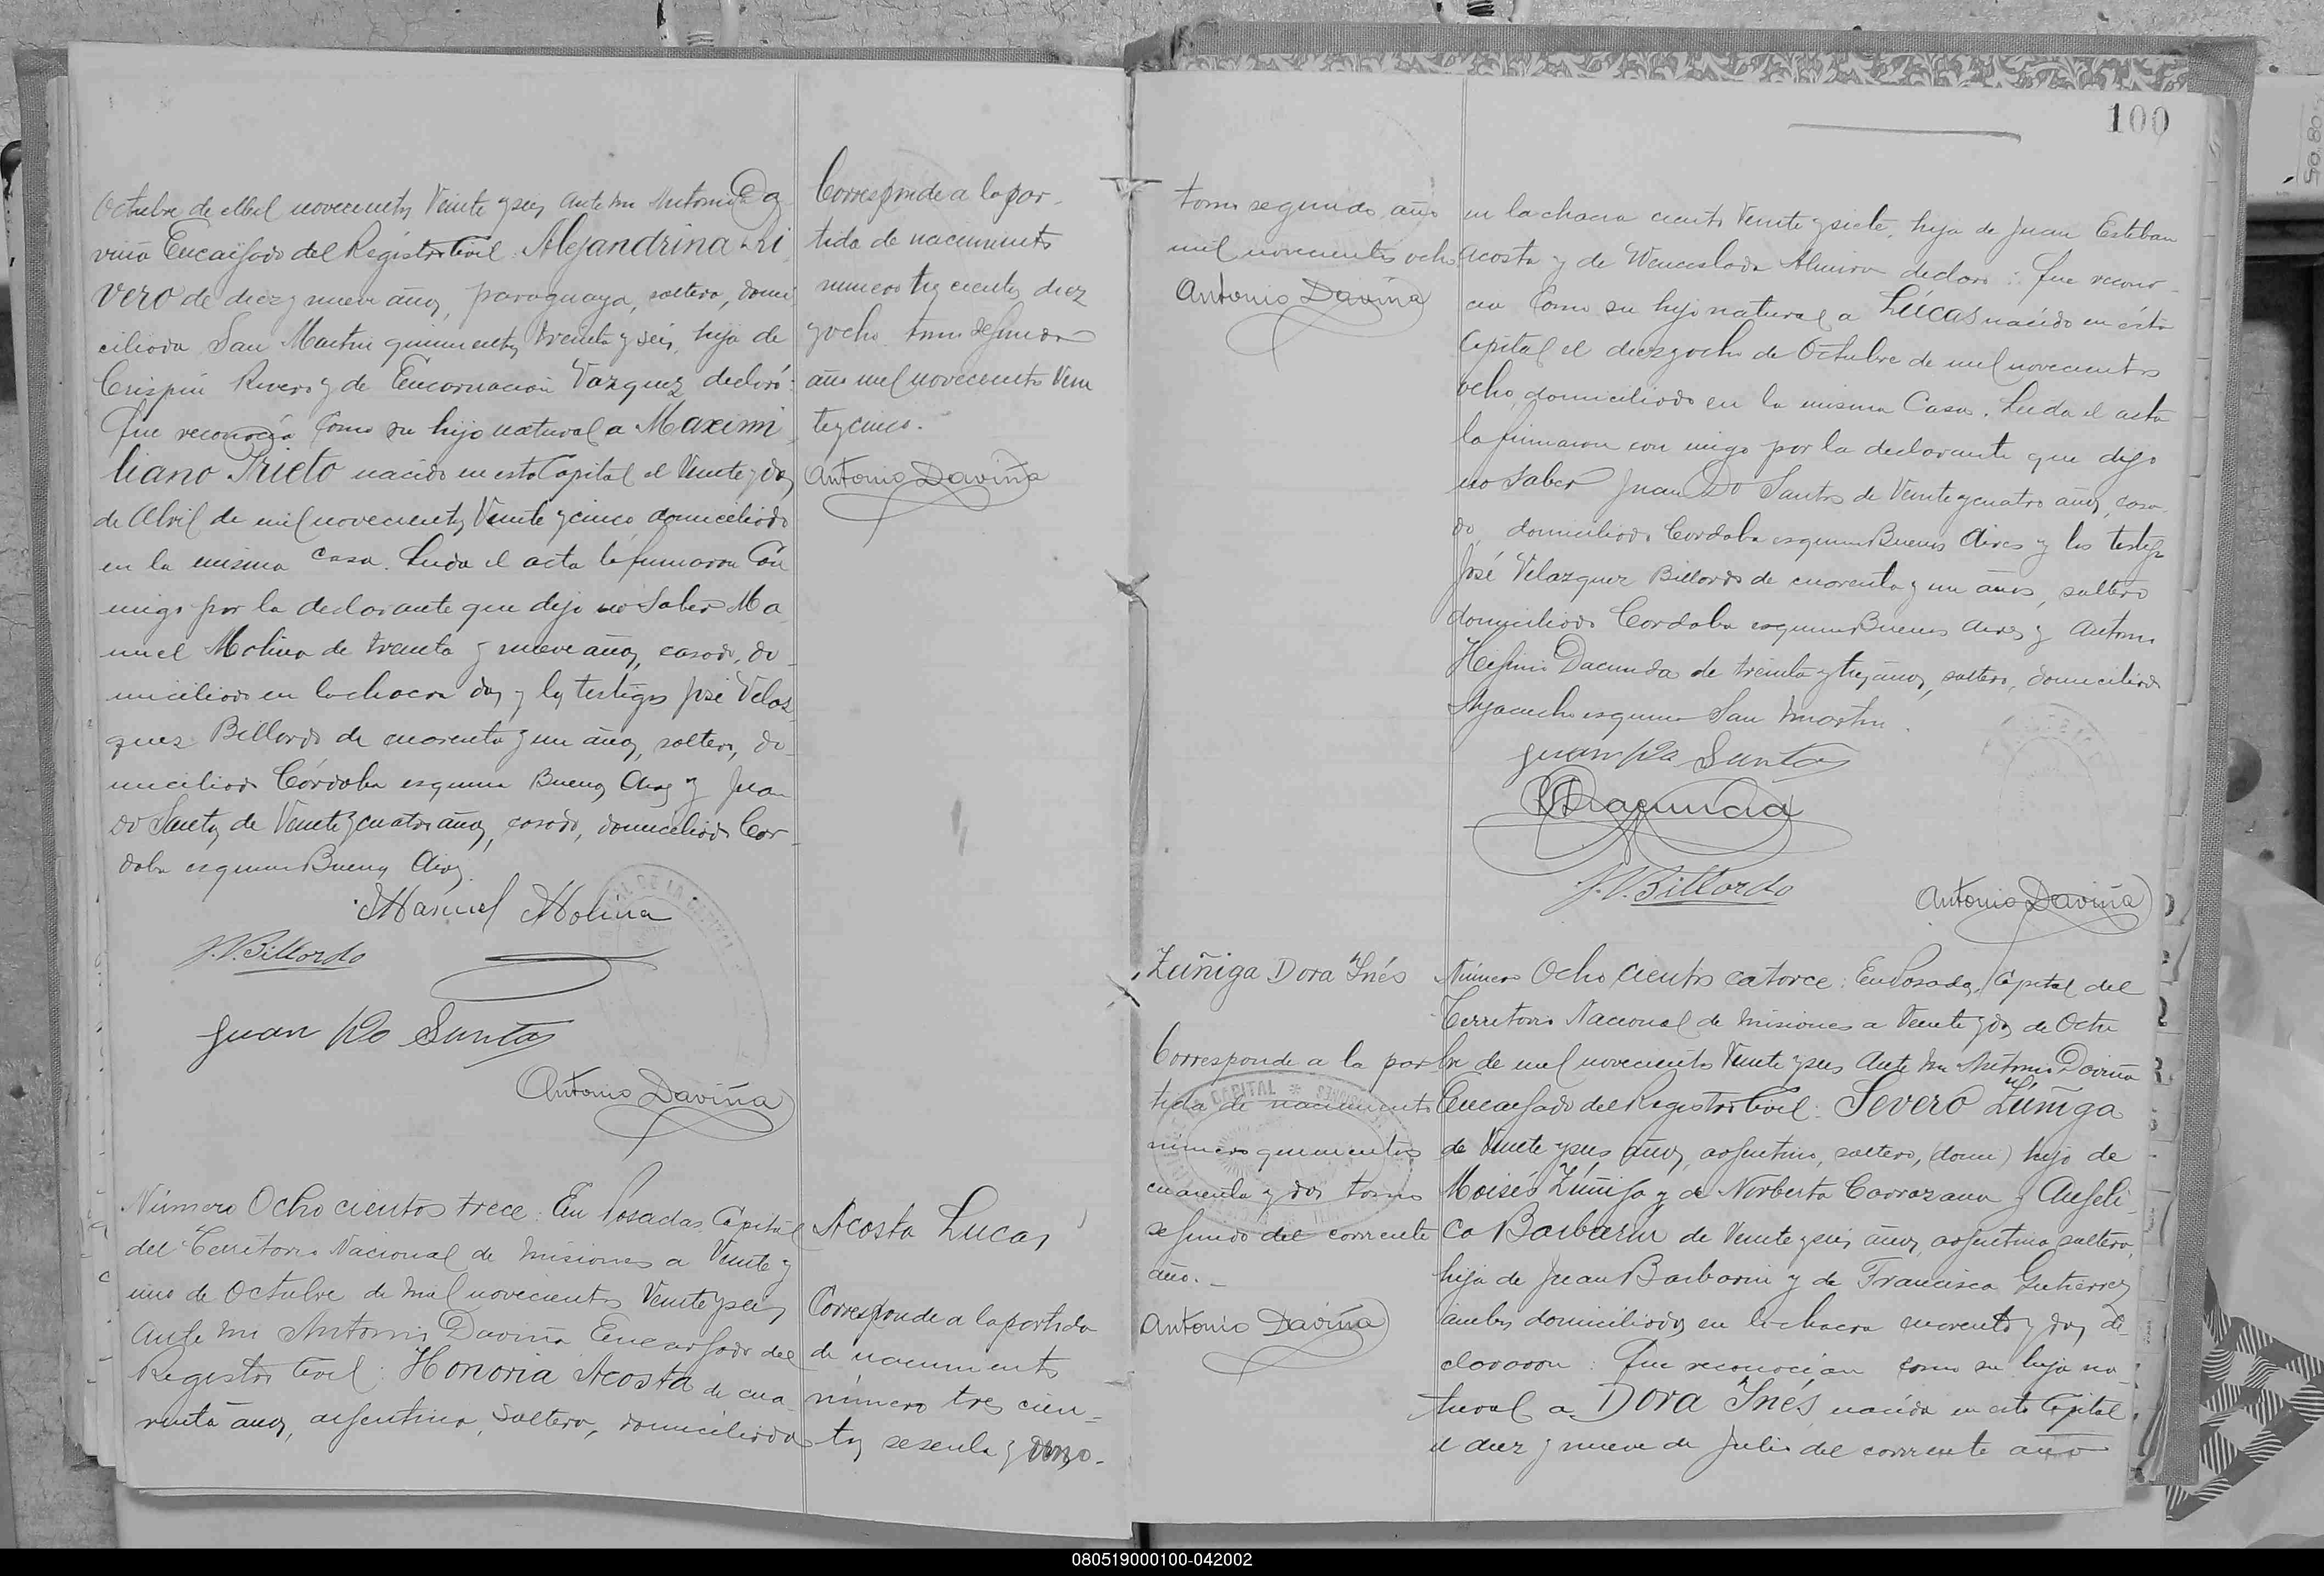 Octubre de mil novecientos Veinte y seis ante mi Antonio Da
viña Encargado del Registro Civil: Alejandrina Ri
vero de diez y nueve años, paraguaya, soltera, domi
ciliada San Martin quinientos treinta y seis, hija de
Crispin Rivero y de Encarnacion Vazquez declaró:
Que reconocia como su hijo natural a Maximi
liano Prieto nacido en esta Capital el Veinte y dos
de Abril de mil novecientos Veinte y cinco domiciliado
en la misma casa. Leida el acta la firmaron con
migo por la declarante que dijo no Saber Ma
nuel Molina de treinta y nueve años, casado, do
miciliado en la chacra dos y los testigos José Velaz
quez Billordo de cuarenta y un años, soltero, do
miciliado Córdoba esquina Buenos Aires y Juan
Do Santos de Veinte y cuatro años, casado, domiciliado Cor
doba esquina Buenos Aires.
Manuel Molina
J.V. Billordo
Juan Do Santos
Antonio Daviña
Corresponde a la par
tida de nacimiento
numero trescientos diez
y ocho tomo segundo
año mil novecientos Vein
te y cinco.
Antonio Daviña
Número Ocho cientos trece: En Posadas Capital
del Territorio Nacional de Misiones a Veinte y
uno de Octubre de mil novecientos Veinte y seis
ante mi Antonio Daviña Encargado del
Registro Civil: Honoria Acosta de cua
renta años, argentina, soltera, domiciliada
Acosta Lucas
Corresponde a la partida
de nacimiento
número tres cien
tos sesenta y
100
tomo segundo año
mil novecientos ocho.
Antonio Daviña
en la chacra ciento Veinte y siete, hija de Juan Esteban
Acosta y de Wenceslada Almiron declaro: Que recono
cia como su hijo natural a Lúcas nacido en ésta
Capital el diez y ocho de Octubre de mil novecientos
ocho, domiciliado en la misma Casa. Leida el acta
la firmaron con migo por la declarante que dijo
no Saber Juan Do Santos de Veinte y cuatro años, casa
do, domiciliado Cordoba esquina Buenos Aires y los testigos
José Velazquez Billordo de cuarenta y un años, soltero
domiciliado Cordoba esquina Buenos Aires y Antonio
Higinio Dacunda de treinta y tres años, soltero, domiciliado
Ayacucho esquina San Martin.
Juan Do Santos
Dacunda
J.V. Billordo
Antonio Daviña
Zúñiga Dora Inés
Corresponde a la par
tida de nacimiento
número quinientos
cuarenta y dos tomo
segundo del corriente
año.-
Antonio Daviña
Número Ocho cientos catorce: En Posadas, Capital del
Territorio Nacional de Misiones a Veinte y dos de Octu
bre de mil novecientos Veinte y seis Ante mi Antonio Daviña
Encargado del Registro Civil: Severo Zúñiga
de Veinte y seis años, argentino, soltero, (domi) hijo de
Moisés Zúñiga y de Norberta Carrazana y Angeli
ca Barbarin de Veinte y seis años, argentina soltera,
hija de Juan Barbarin y de Francisca Gutierrez
ambos domiciliados en la chacra cuarenta y dos, de
clararon: Que reconocian como su hija na
tural a Dora Inés, nacida en esta Capital
el diez y nueve de Julio del corriente año
080519000100-042002